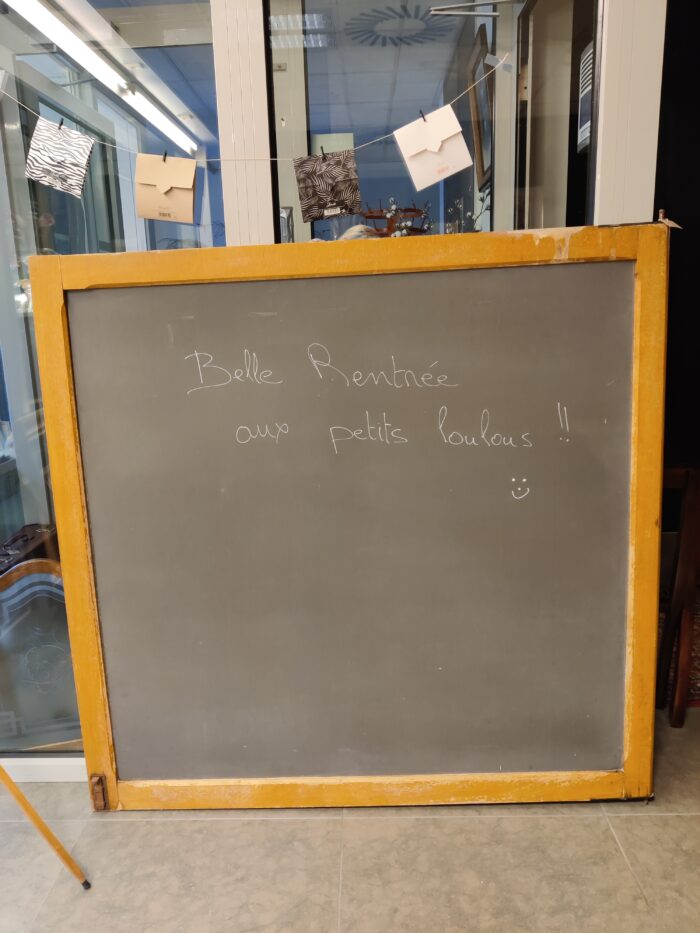 Belle Rentrée
aux petits loulous !!